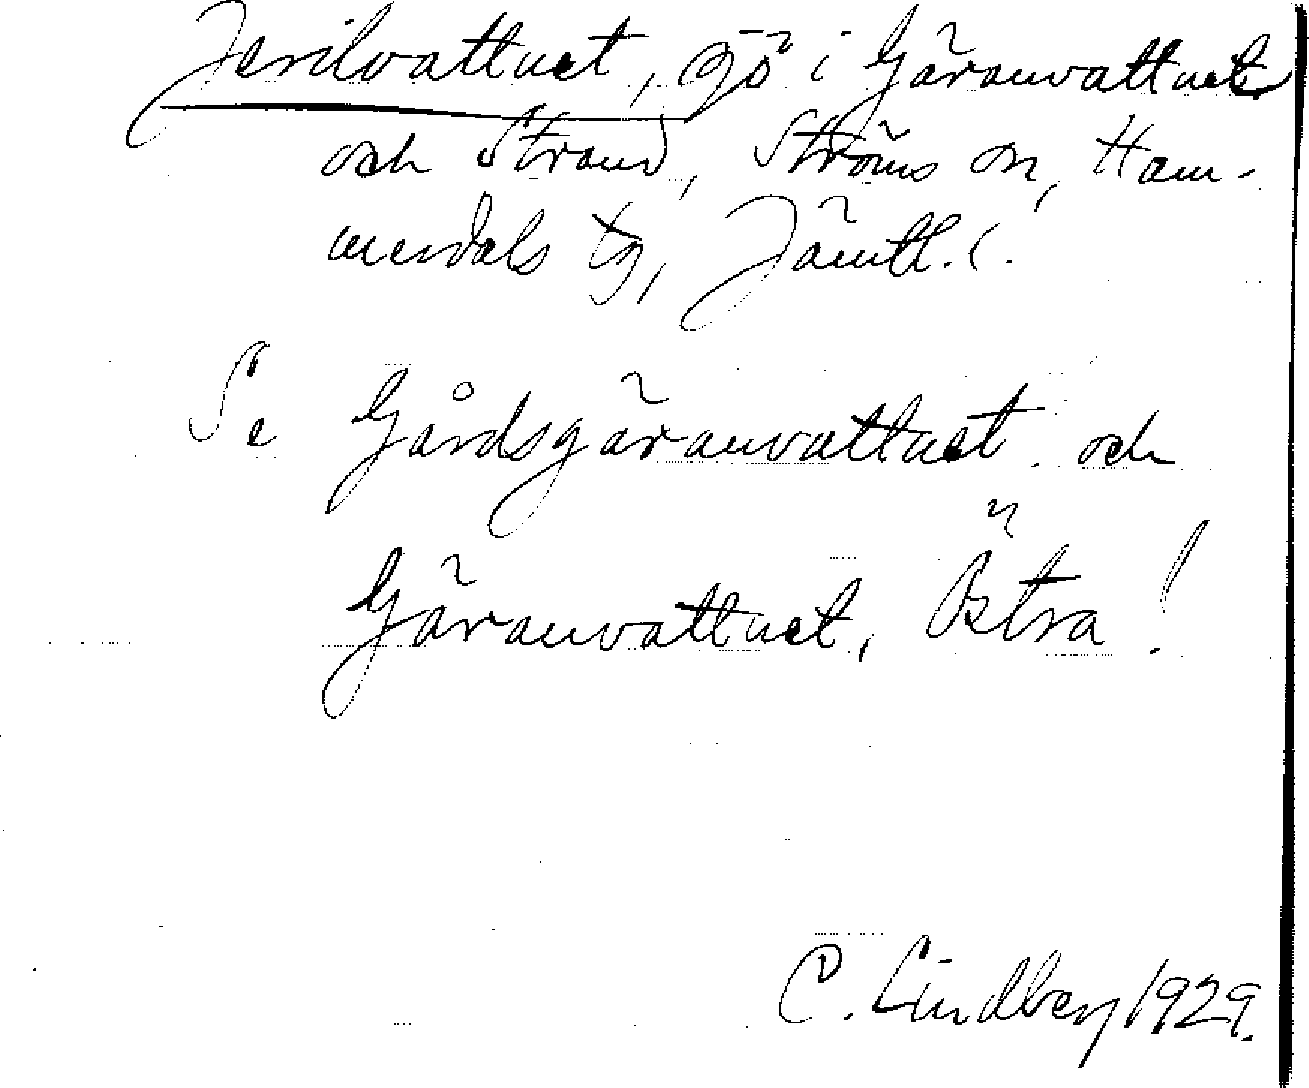 Jerilvattnet, sjö i Gäranvattnet
och Strand, Ströms sn, Ham-
merdals tg, Jämtl. l.
Se Gårdsgäranvattnet och
Gäranvattnet, Östra!
C. Lindberg 1929.